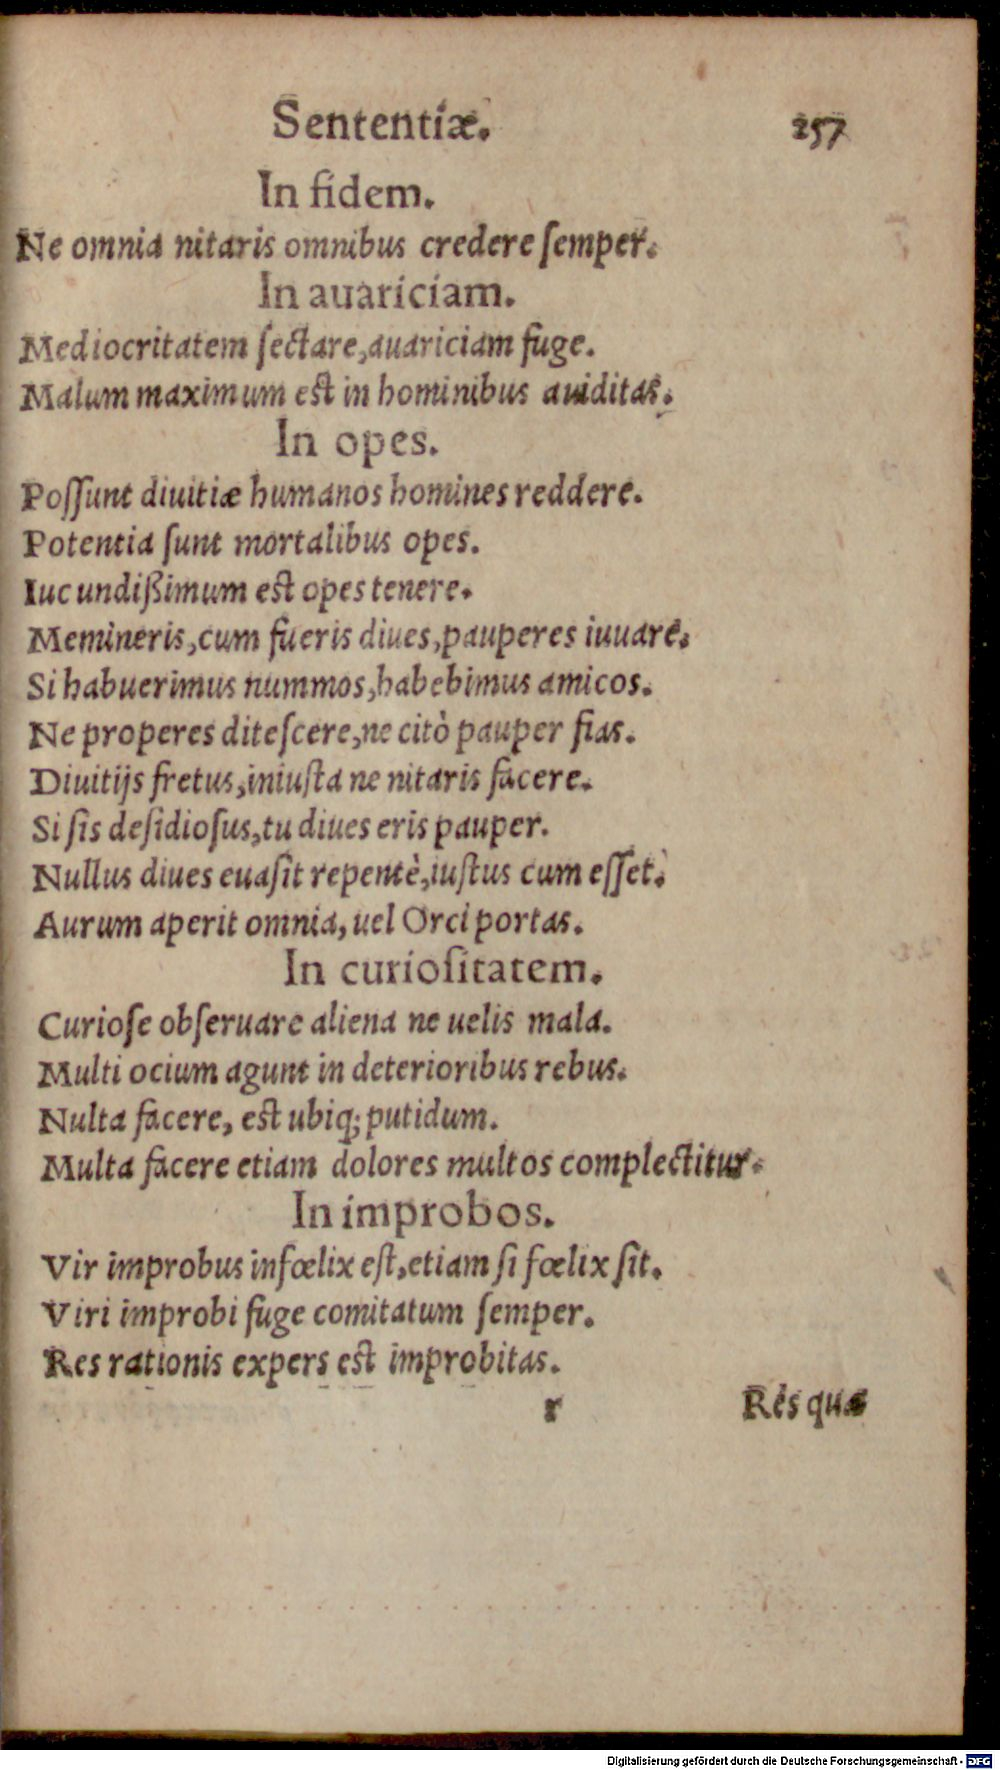 Sententiæ. 257
In fidem.
Ne omnia nitaris omnibus credere ſemper.
In auariciam.
Mediocritatem ſectare,auariciam fuge.
Malum maximum est in hominibus auiditas.
In opes.
Poſſunt diuitiæ humanos homines reddere.
Potentia ſunt mortalibus opes.
Iucundißimum est opes tenere.
Memineris,cum fueris diues,pauperes iuuare.
Si habuerimus nummos,habebimus amicos.
Ne properes diteſcere,ne citò pauper fias.
Diuitijs fretus,iniuſta ne nitaris facere.
Si ſis deſidioſus,tu diues eris pauper.
Nullus diues euaſit repentè,iuſtus cum eſſet.
Aurum aperit omnia, uel Orci portas.
In curioſitatem.
Curioſe obſeruare aliena ne uelis mala.
Multi ocium agunt in deterioribus rebus.
Nulta facere, est ubiq; putidum.
Multa facere etiam dolores multos complectitur.
In improbos.
Vir improbus infœlix eſt,etiam ſi fœlix ſit.
Viri improbi fuge comitatum ſemper.
Res rationis expers est improbitas.
r Res quæ
Digitalisierung gefördert durch die Deutsche Forschungsgemeinschaft - DFG